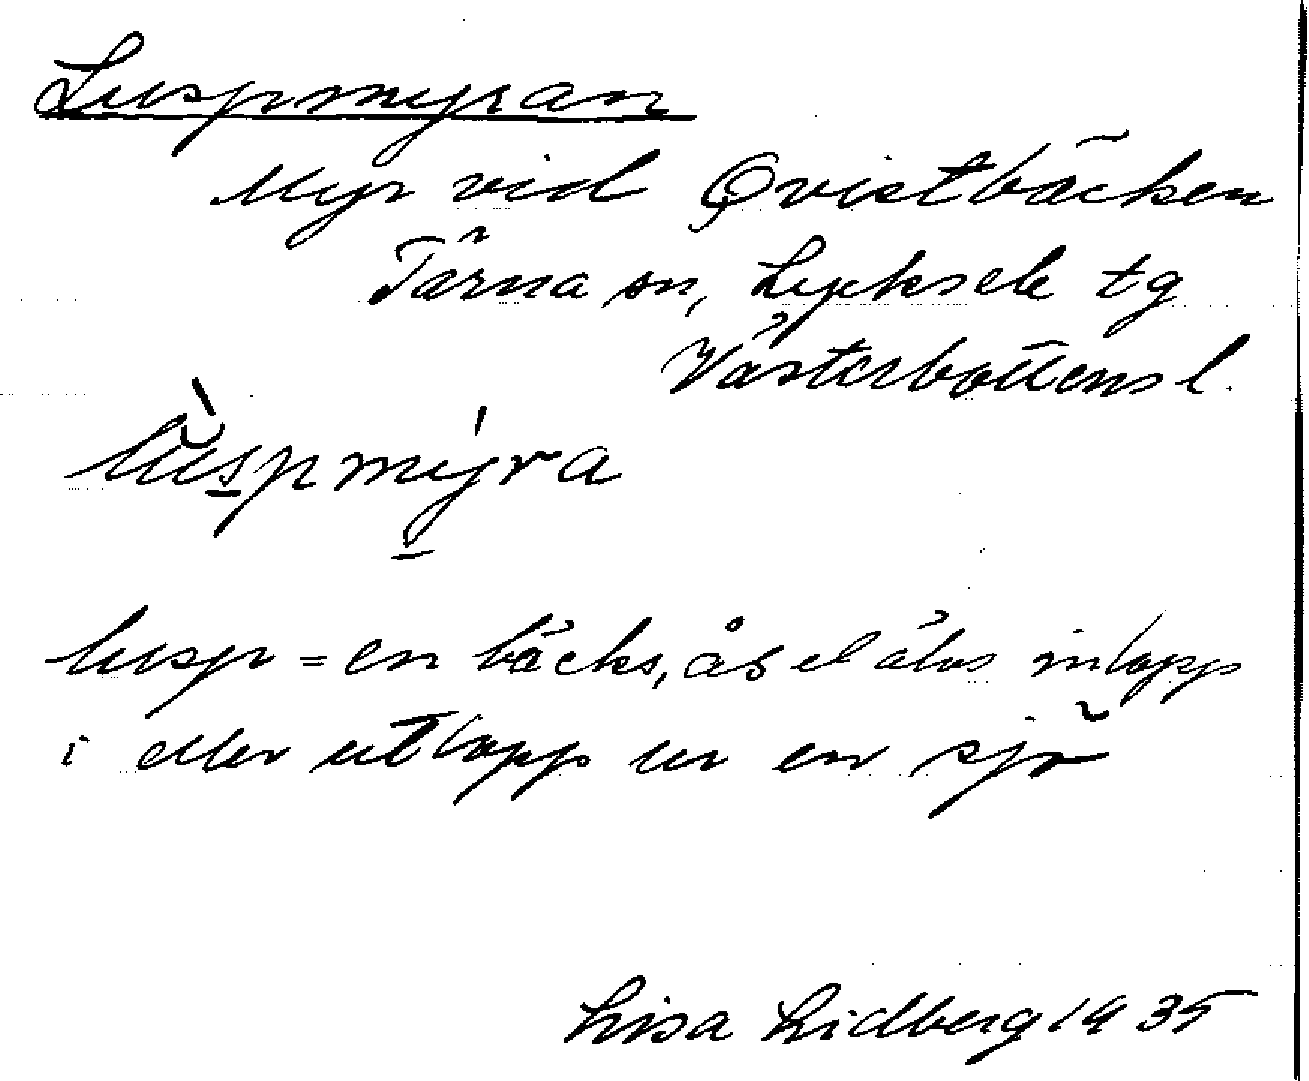 Luspmyran
Myr vid Qvistbäcken
Tärna sn, Lycksele tg
Västerbottens l.
lùspmýra
lusp = en bäcks, ås el älvs inlopp
i eller utlopp ur en sjö
Lisa Lidberg 1935